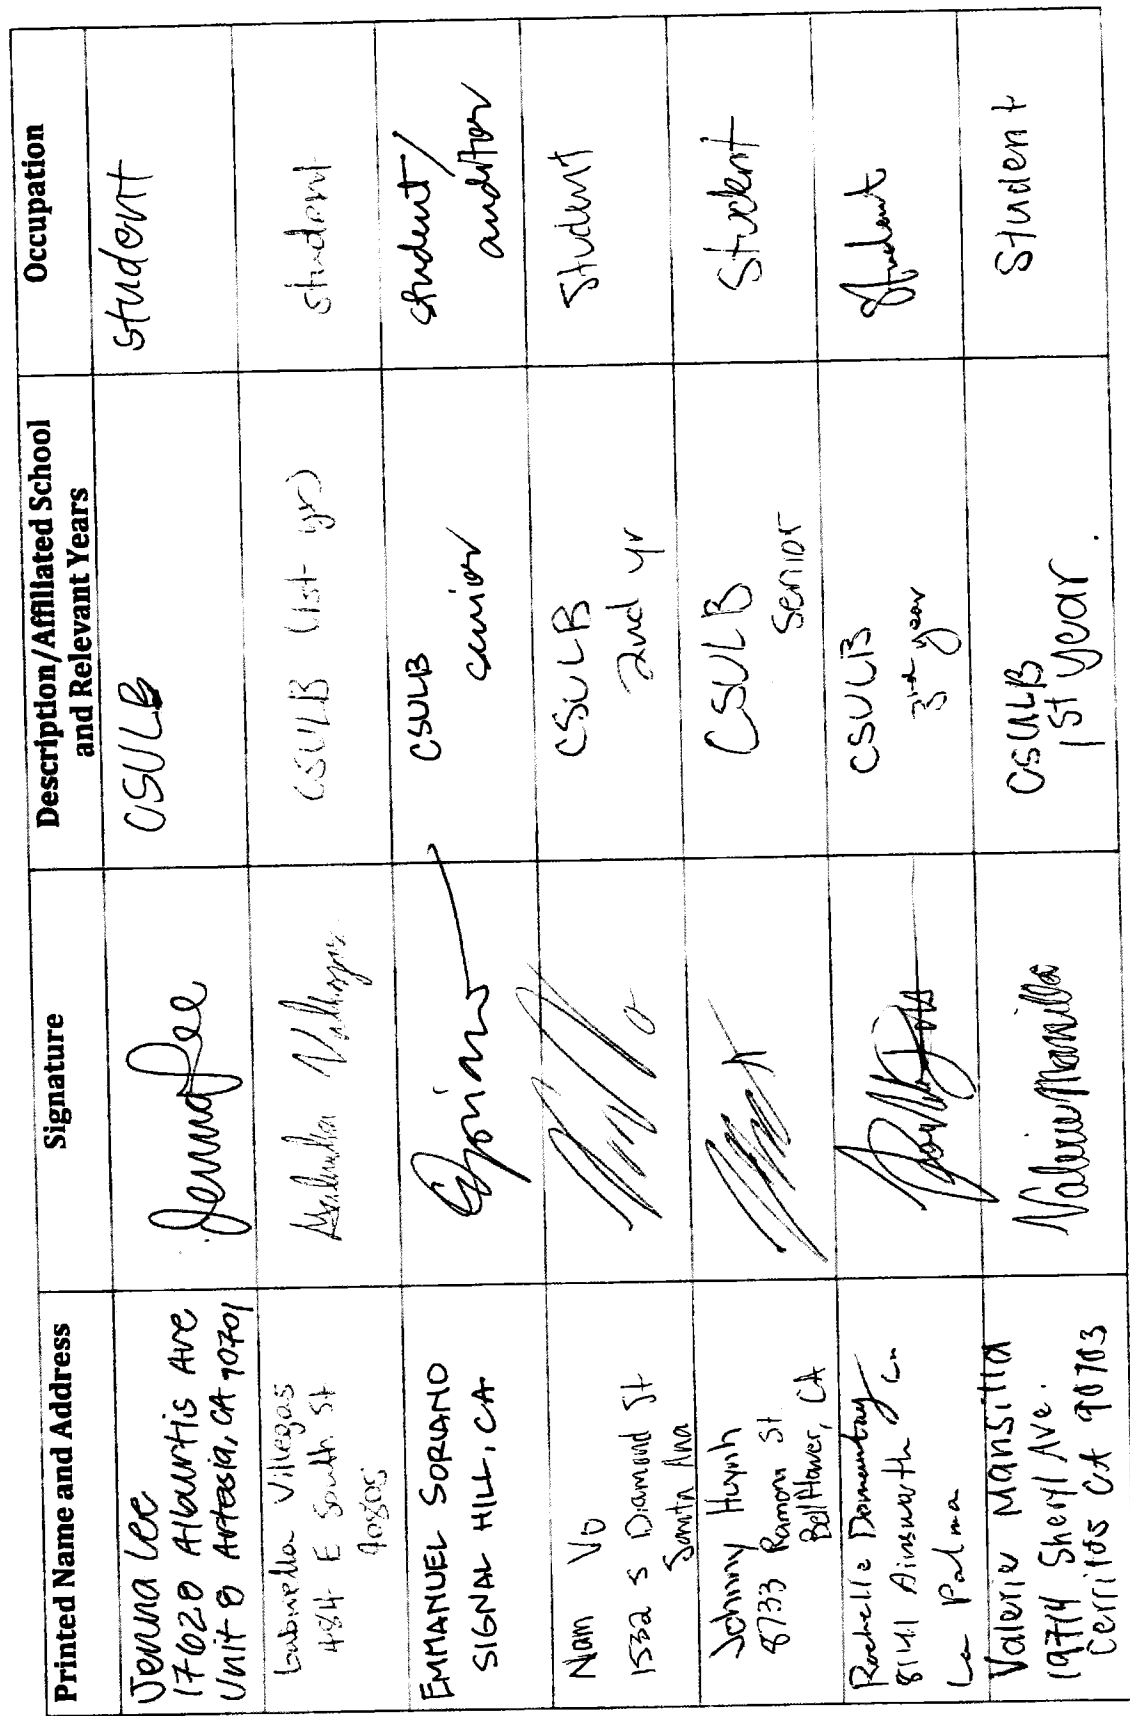 Printed Name and Address
Signature
Description/Affiliated School
and Relevant Years
Occupation
Jenna Lee
17020 Alburtis Ave
Unit 8 Artesia, CA 90701
Jenna Lee
CSULB
student
Villegas
484 E South St
90805
CSULB (1st yr)
student
EMMANUEL SORIANO
SIGNAL HILL, CA
CSULB
senior
student/
auditor
Nam Vo
1532 S Diamond St
Santa Ana
CSULB
2nd yr
Student
Johnny Huynh
8733 Ramona St
Bellflower, CA
CSULB
Senior
Student
Rochelle
8141 Ainsworth Ln
La Palma
CSULB
3rd year
Student
Valerie Mansilla
19714 Sheryl Ave.
Cerritos CA 90703
Valerie Mansilla
CSULB
1st year.
Student